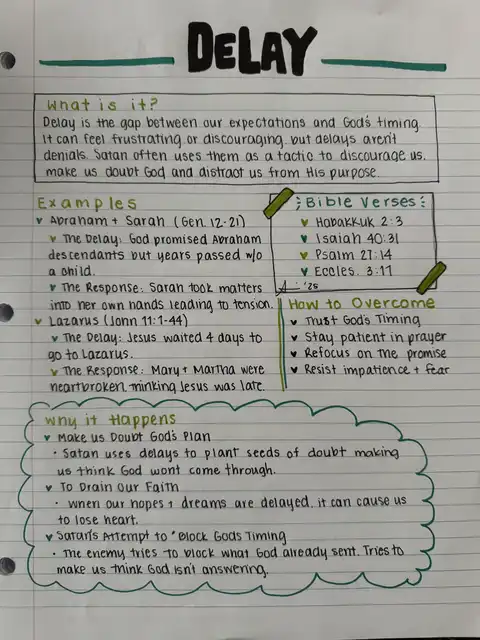 DELAY
What is it?
Delay is the gap between our expectations and God's timing.
It can feel frustrating or discouraging, but delays aren't
denials. Satan often uses them as a tactic to discourage us,
make us doubt God and distract us from His purpose.
Examples
Abraham + Sarah (Gen. 12-21)
The Delay: God promised Abraham
descendants but years passed w/o
a child.
The Response: Sarah took matters
into her own hands leading to tension.
Lazarus (John 11:1-44)
The Delay: Jesus waited 4 days to
go to Lazarus.
The Response: Mary + Martha were
heartbroken thinking Jesus was late.
Bible Verses:
Habakkuk 2:3
Isaiah 40:31
Psalm 27:14
Eccles. 3:11
'25
How to Overcome
Trust God's Timing
Stay patient in prayer
Refocus on the promise
Resist impatience + fear
Why it Happens
Make us Doubt God's Plan
• Satan uses delays to plant seeds of doubt making
us think God wont come through.
To Drain Our Faith
• When our hopes + dreams are delayed, it can cause us
to lose heart.
Satan's Attempt to "Block Gods Timing
• The enemy tries to block what God already sent. Tries to
make us think God isn't answering.